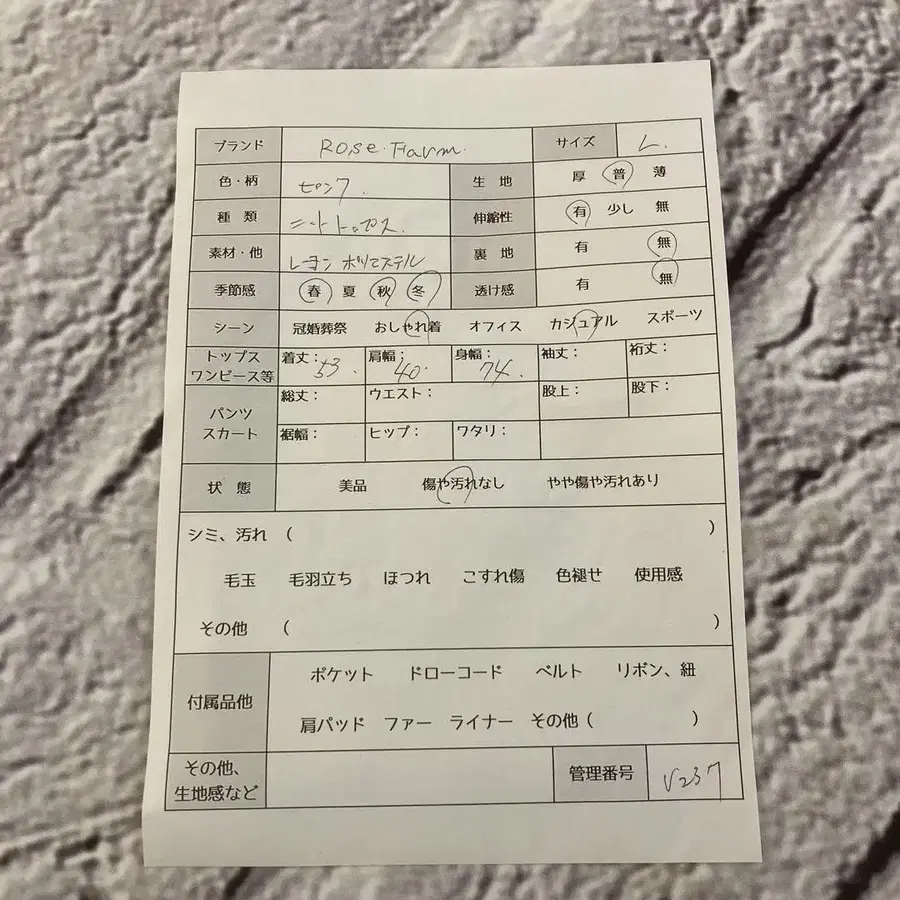 ブランド Rose Farm. サイズ L.
色・柄 ピンク. 生地 厚 普 薄
種類 ニットトップス. 伸縮性 有 少し 無
素材・他 レーヨン ポリエステル 裏地 有 無
季節感 春 夏 秋 冬 透け感 有 無
シーン 冠婚葬祭 おしゃれ着 オフィス カジュアル スポーツ
トップス ワンピース等 着丈： 53. 肩幅： 40. 身幅： 74. 袖丈： 裄丈：
パンツ スカート 総丈： ウエスト： 股上： 股下：
裾幅： ヒップ： ワタリ：
状態 美品 傷や汚れなし やや傷や汚れあり
シミ、汚れ （ ）
毛玉 毛羽立ち ほつれ こすれ傷 色褪せ 使用感
その他 （ ）
付属品他 ポケット ドローコード ベルト リボン、紐
肩パッド ファー ライナー その他（ ）
その他、 生地感など 管理番号 V237